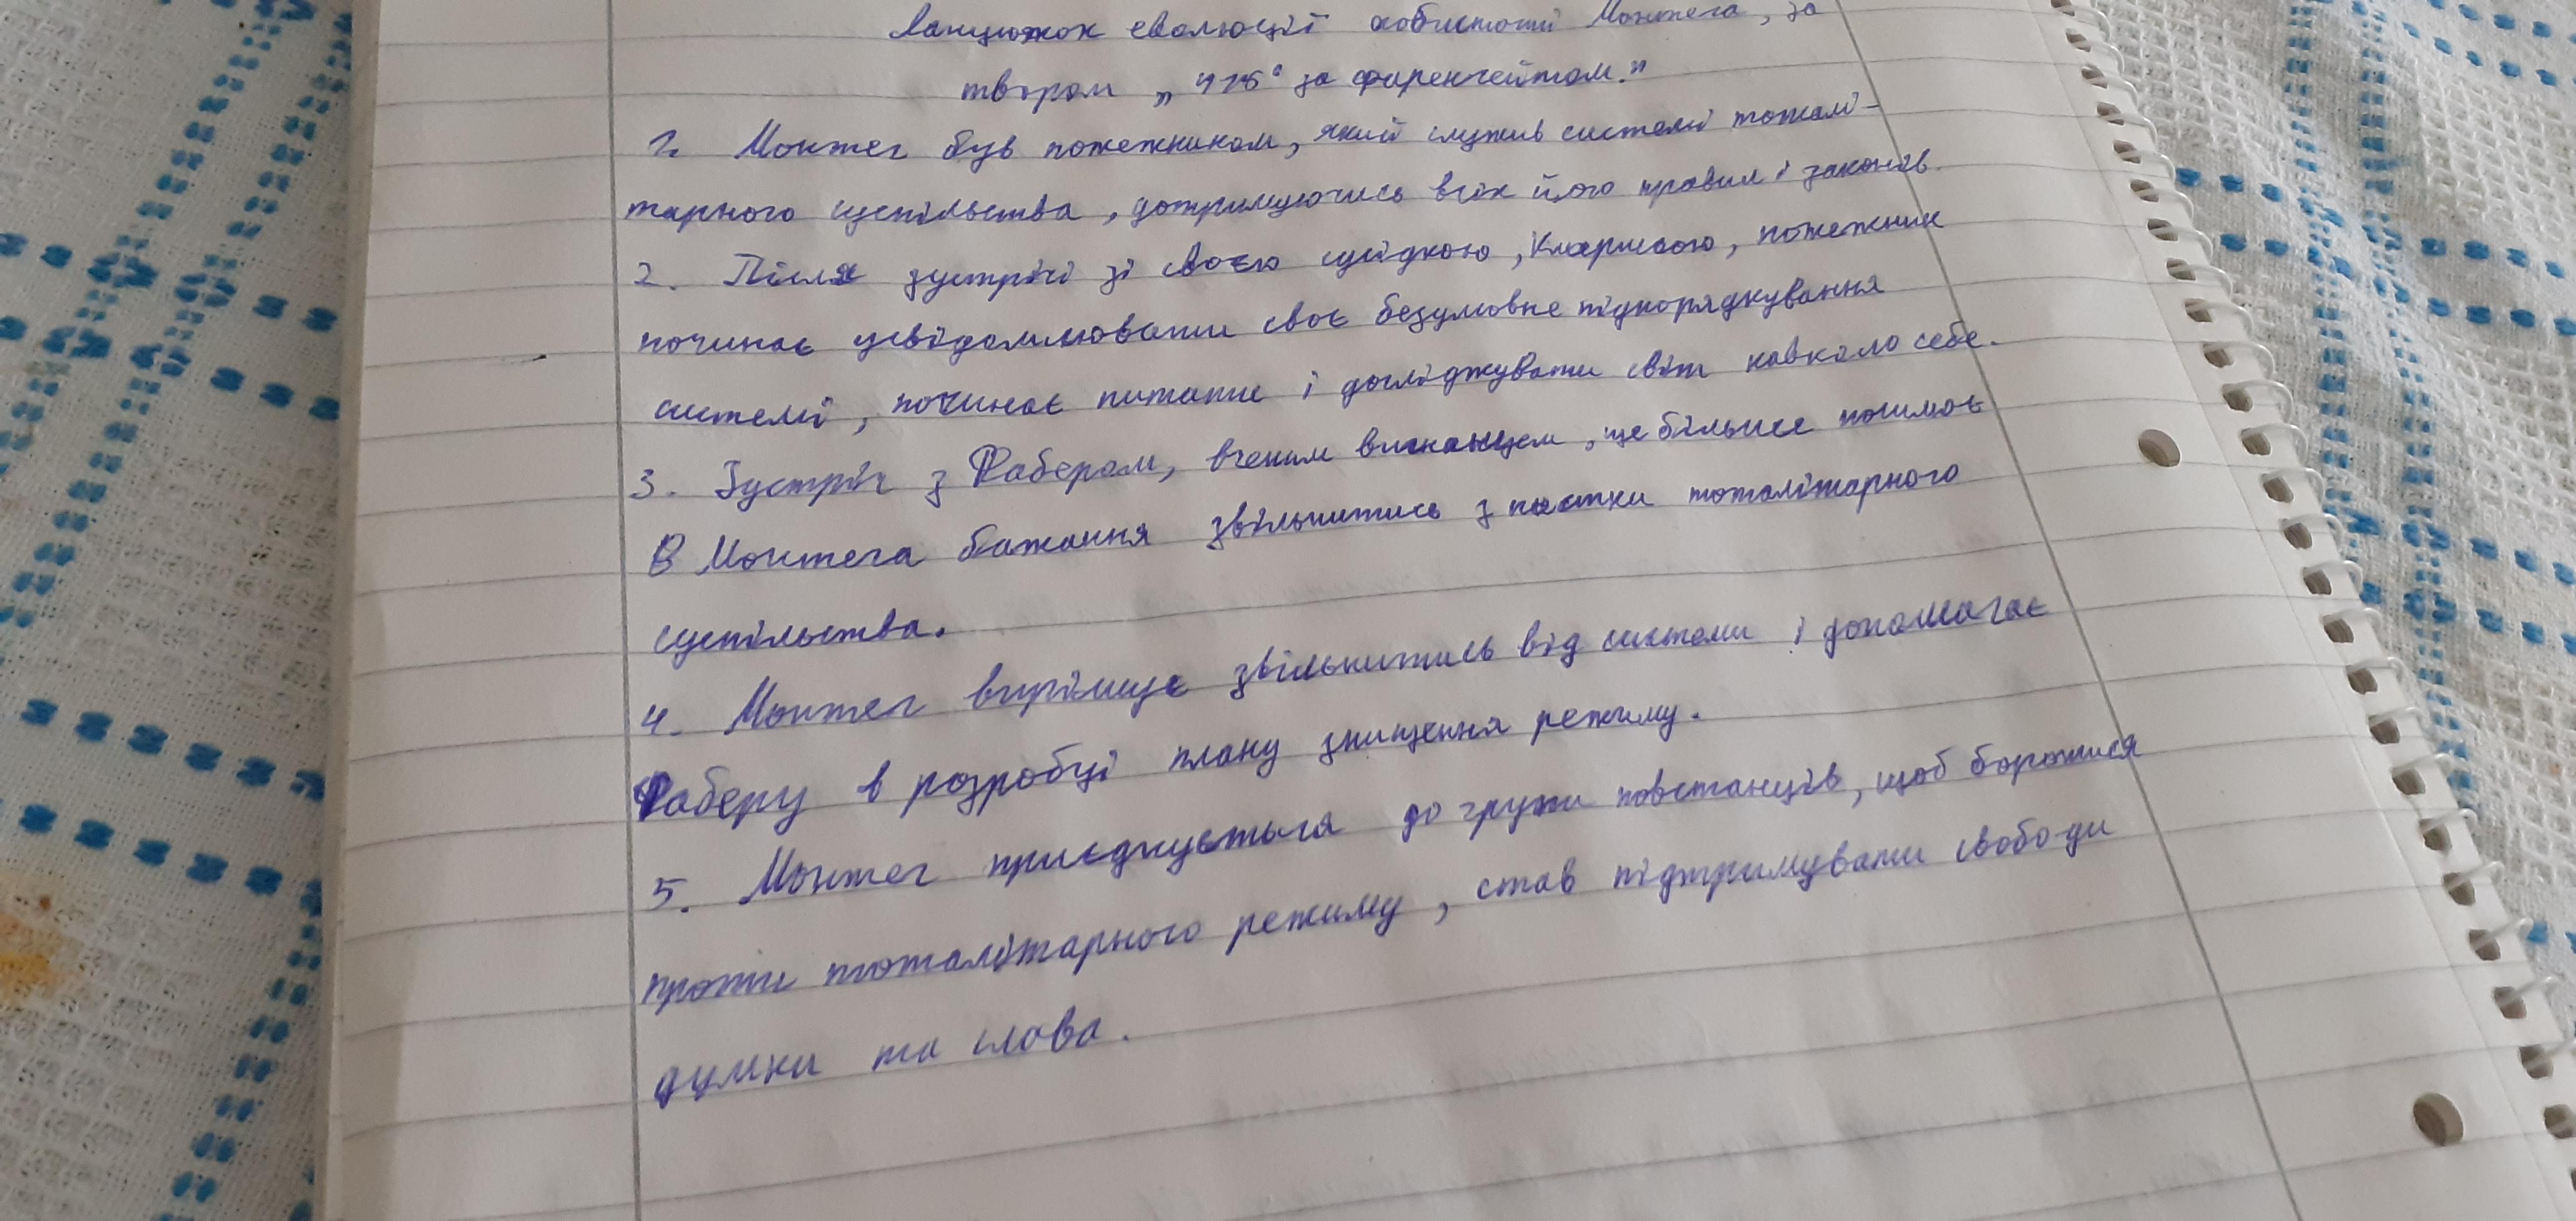 Ланцюжок еволюції особистості Монтега, за
твором „ 415° за фаренгейтом."
1. Монтег був пожежником, який служив системі тоталі-
тарного суспільства, дотримуючись всіх його правил і законів.
2. Після зустрічі зі своєю сусідкою, Кларисою, пожежник
починає усвідомлювати своє безумовне підпорядкування
системі, починає питати і досліджувати світ навколо себе.
3. Зустріч з Фабером, вченим вигнанцем, ще більше
В Монтега бажання звільнитись з пастки тоталітарного
суспільства.
4. Монтег вирішує звільнитись від системи і допомагає
Фаберу в розробці плану знищення режиму.
5. Монтег приєднується до групи повстанців, щоб боротися
проти тоталітарного режиму, став підтримувати свободи
думки та слова.